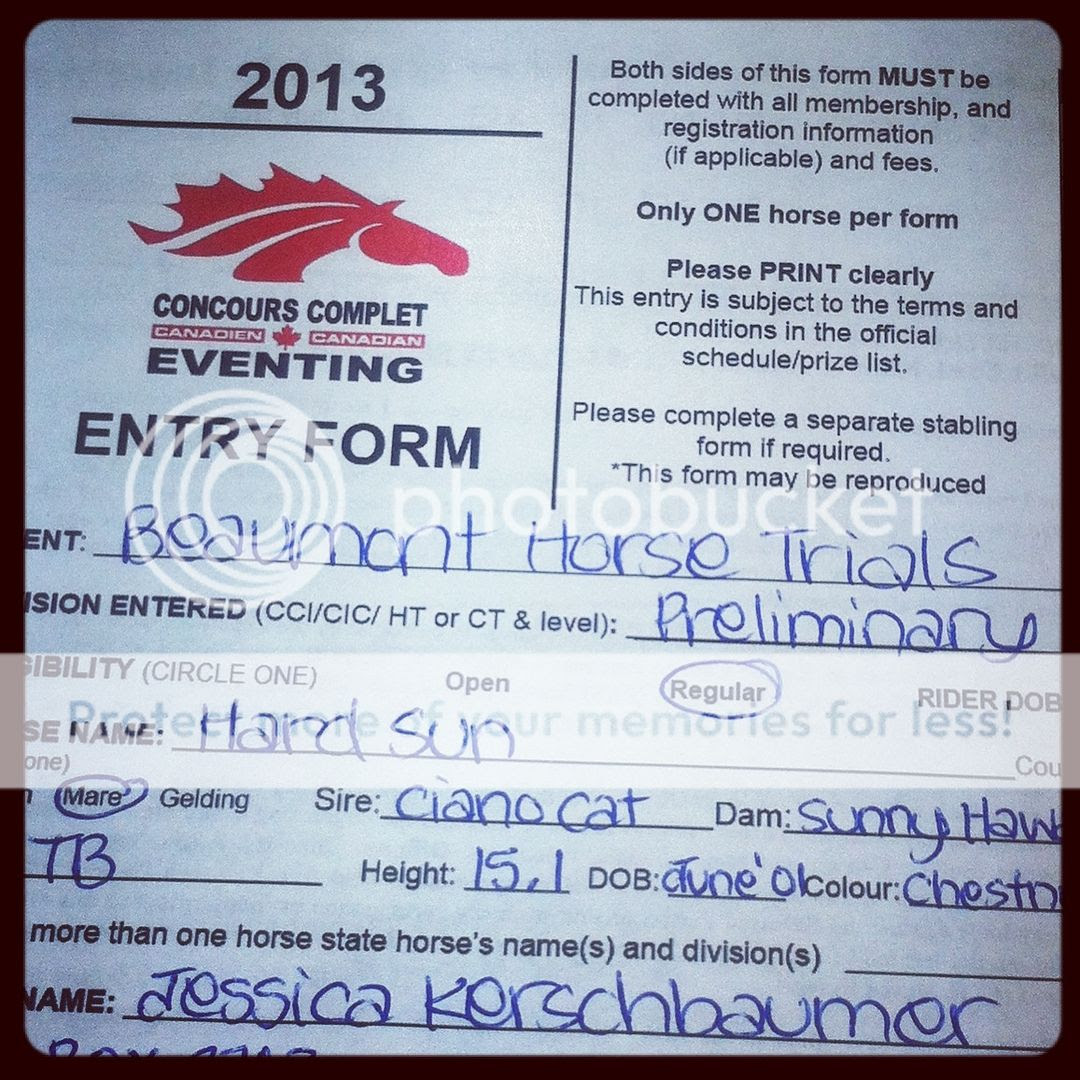 2013
CONCOURS COMPLET
CANADIEN CANADIAN
EVENTING
ENTRY FORM
Both sides of this form MUST be
completed with all membership, and
registration information
(if applicable) and fees.
Only ONE horse per form
Please PRINT clearly
This entry is subject to the terms and
conditions in the official
schedule/prize list.
Please complete a separate stabling
form if required.
*This form may be reproduced
photobucket
ENT: Beaumont Horse Trials
ISION ENTERED (CCI/CIC/ HT or CT & level): Preliminary
GIBILITY (CIRCLE ONE) Open Regular RIDER DOB
Protect more of your memories for less!
SE NAME: Hard Sun
one) Cou
Mare Gelding Sire: Ciano Cat Dam: Sunny Haw
TB Height: 15.1 DOB: June '01 Colour: Chestn
more than one horse state horse's name(s) and division(s)
NAME: Jessica Kerschbaumer
Box